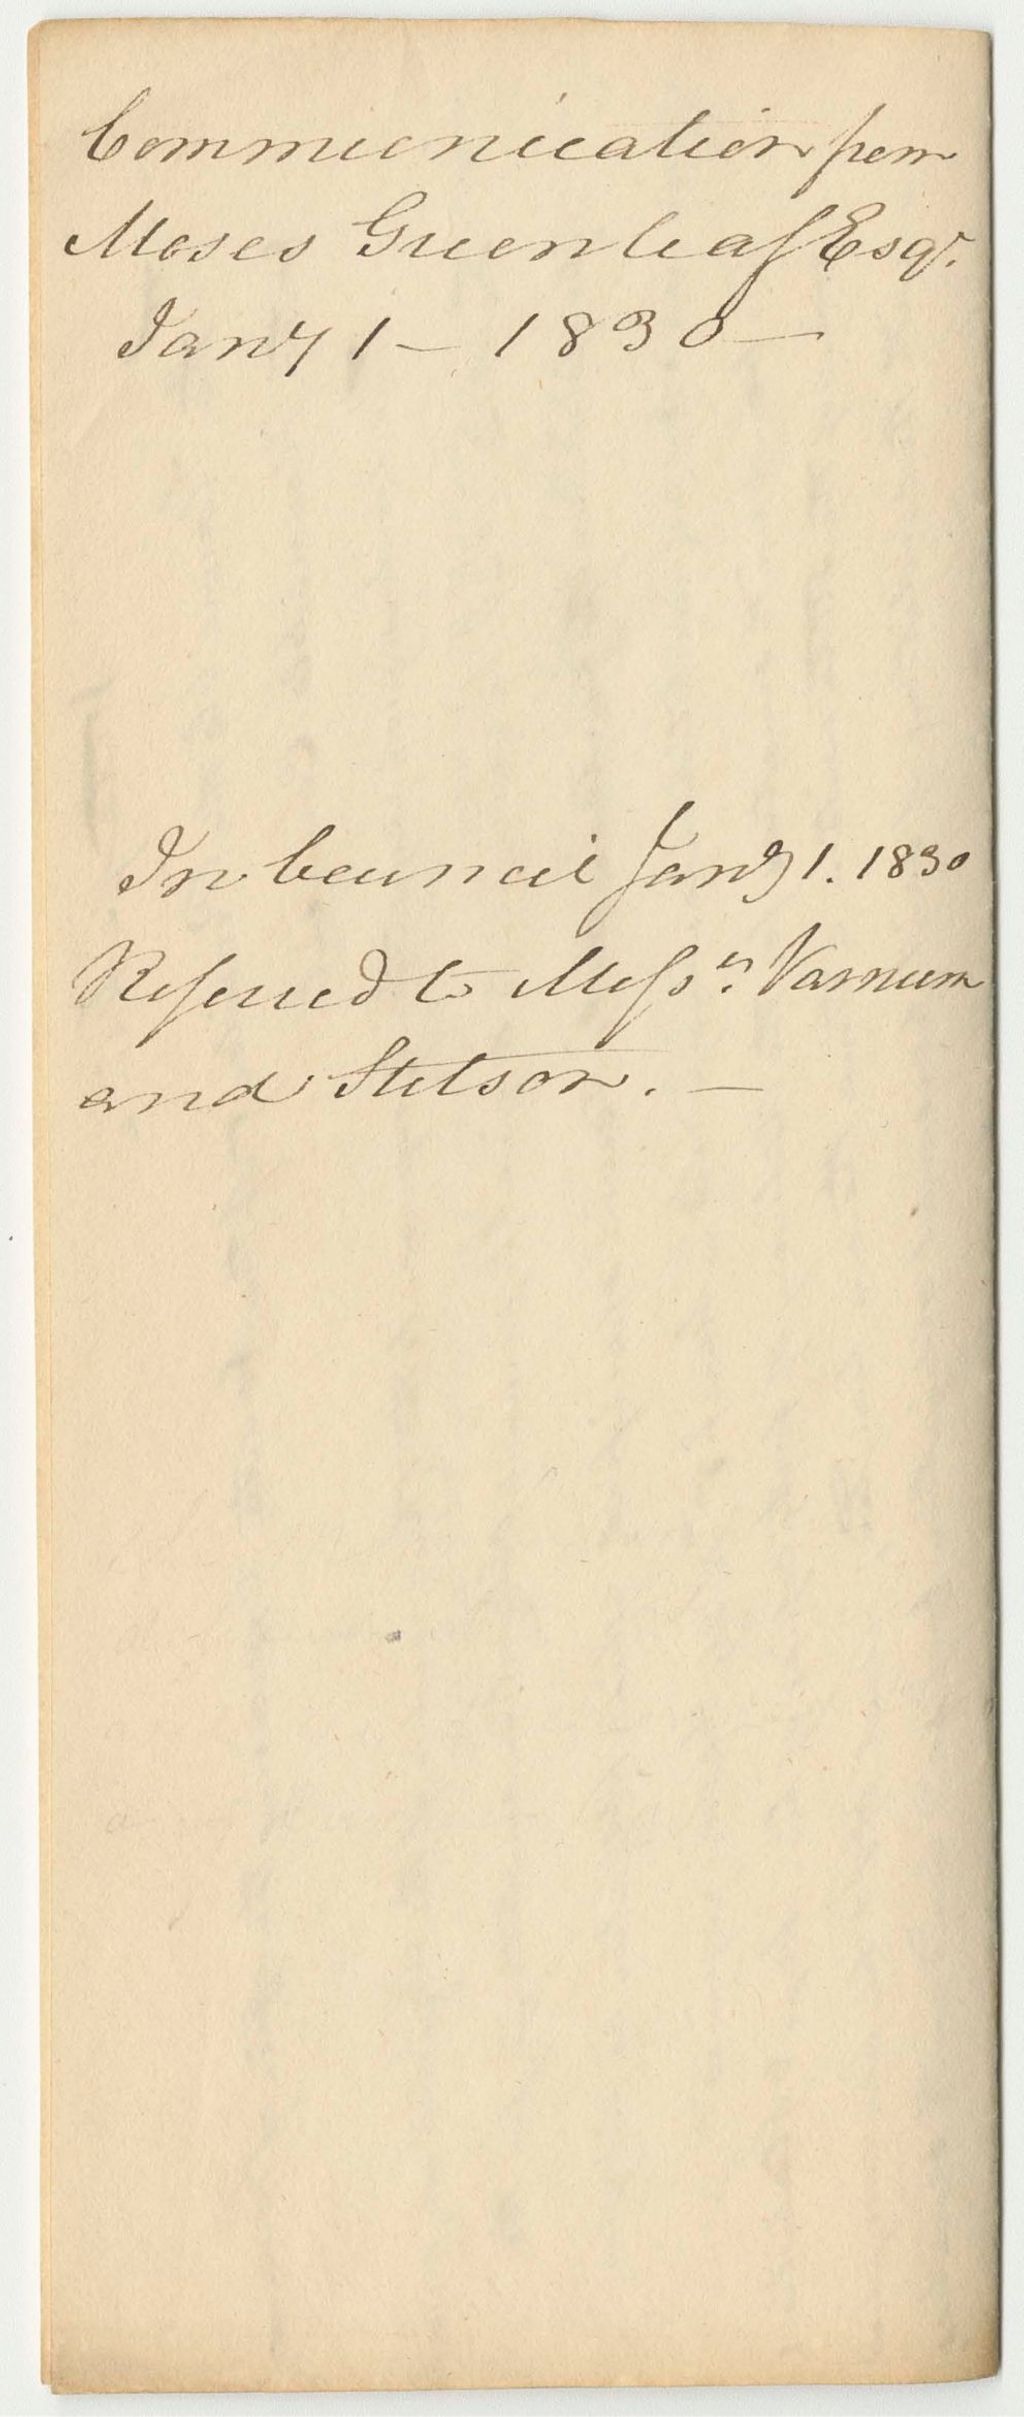 Communication from
Moses Greenleaf Esqr.
Jany 1 — 1830 —
In Council Jany 1. 1830
Referred to Messrs. Varnum
and Stetson. —